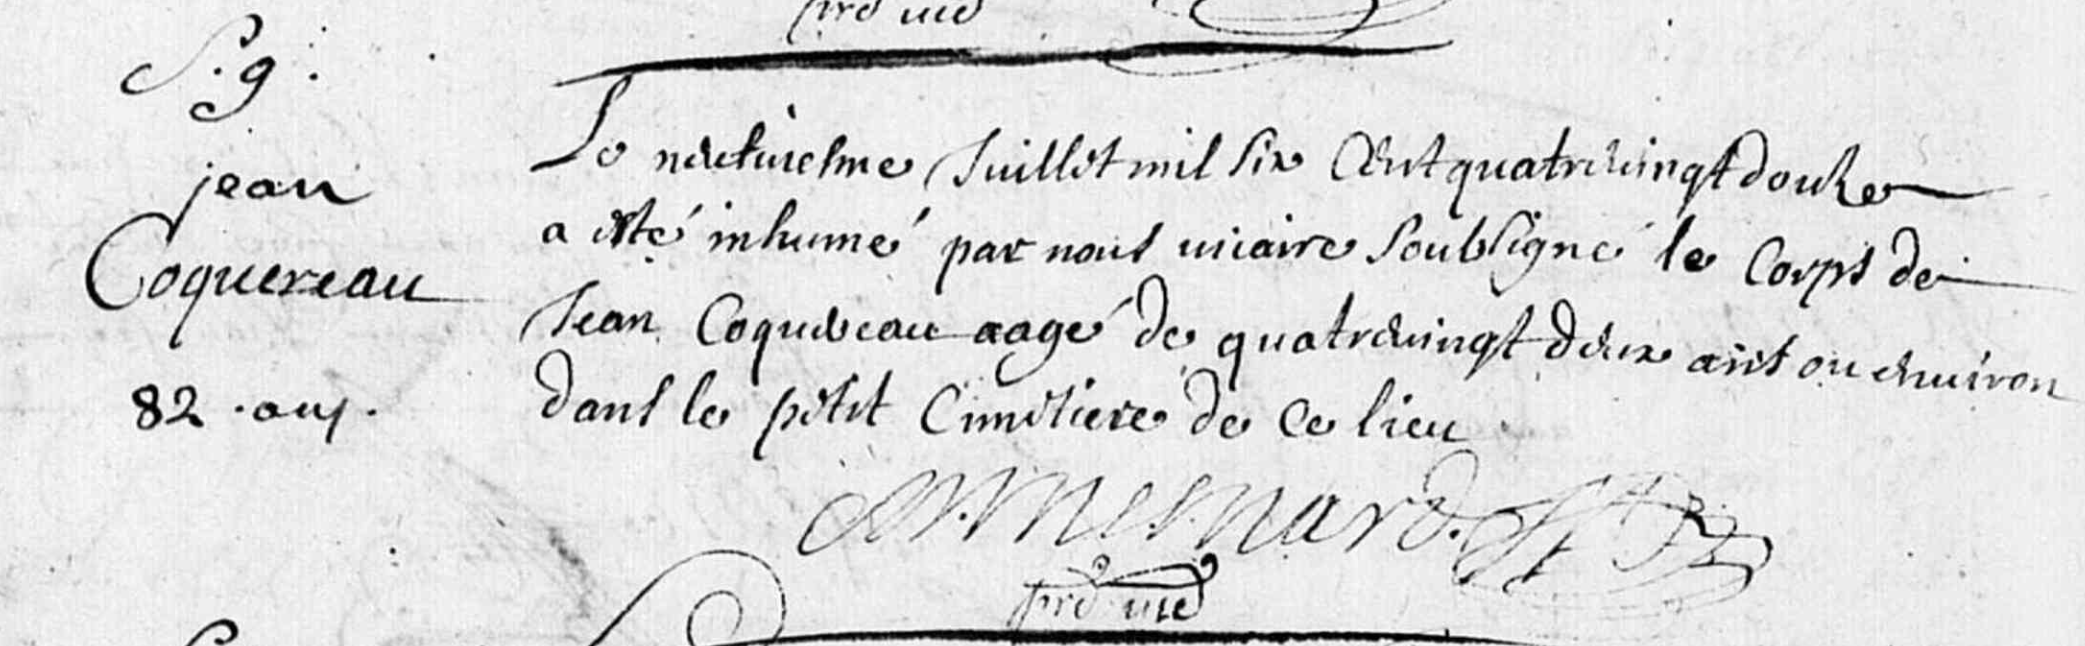 prb vic
S. 9.
jean
Coquereau
82 ans.
Le neufuiesme Juillet mil six Cent quatreuingt douze
a esté inhumé par nous vicaire soubsigné le Corps de
Jean Coquereau aagé de quatreuingt deux ans ou enuiron
dans le petit Cimetiere de ce lieu
Mesnard